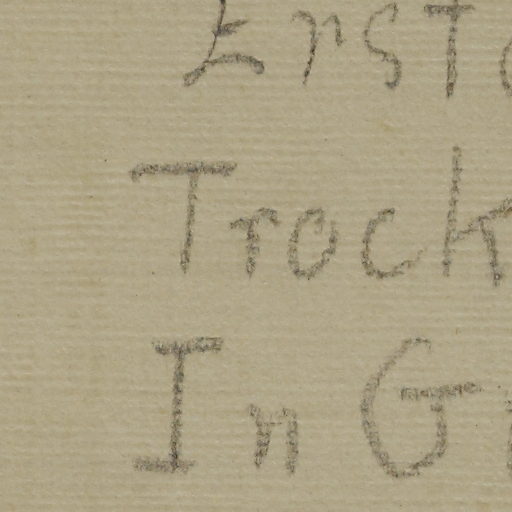 Erst
Trock
In G